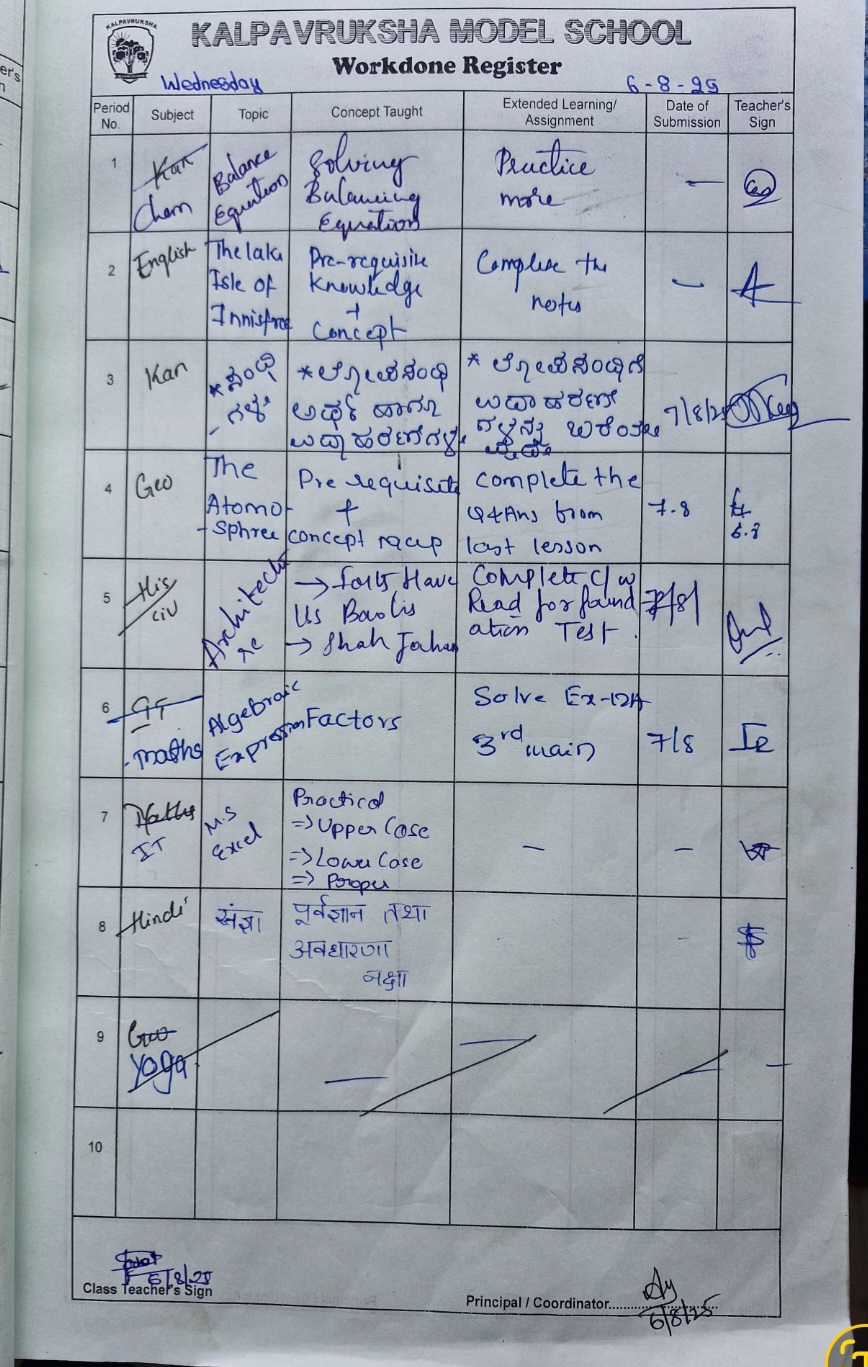 KALPAVRUKSHA
KALPAVRUKSHA MODEL SCHOOL
Workdone Register
Wednesday
6-8-25
Period No.
Subject
Topic
Concept Taught
Extended Learning/ Assignment
Date of Submission
Teacher's Sign
1
Kan
Chem
Balance
Equation
Solving
Balancing
Equation
Practice
more
—
2
English
The lake
Isle of
Innisfree
Pre-requisite
knowledge
+
concept
Complete the
notes
—
3
Kan
*ಸಂಧಿ
ಗಳು
*ಲೋಪಸಂಧಿ
ಅರ್ಥ ಹಾಗೂ
ಉದಾಹರಣೆಗಳು
* ಲೋಪಸಂಧಿಗೆ
ಉದಾಹರಣೆ
ಗಳನ್ನು
7/8/25
4
Geo
The
Atomo-
-Sphree
Pre requisite
+
concept recap
complete the
Q&Ans from
last lesson
7.8
6.8
5
His
civ
Architectu
re
→ forts Have
Us Baolis
→ Shah Jahan
Complete c/w
Read for found
ation Test.
7/8/
6
maths
Algebraic
Expression
Factors
Solve Ex-12A
3rd main
7/8
7
Maths
IT
M.S
Excel
Practical
=> Upper Case
=> Lower Case
=> Proper
—
—
8
Hindi
संज्ञा
पूर्वज्ञान तथा
अवधारणा
नक्षा
-
9
Geo
Yoga
—
—
—
—
10
6/8/25
Class Teacher's Sign
Principal / Coordinator
6/8/25